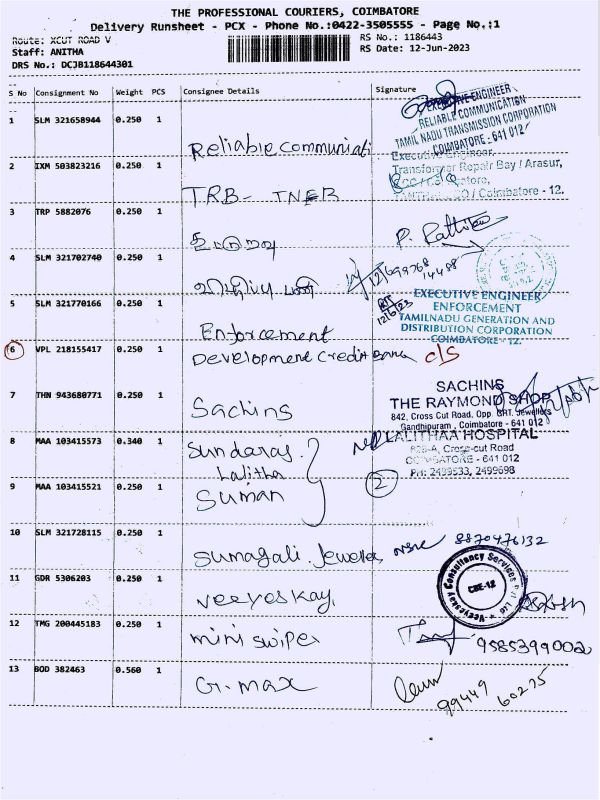 THE PROFESSIONAL COURIERS, COIMBATORE
Delivery Runsheet - PCX - Phone No.:0422-3505555 - Page No.:1
Route: XCUT ROAD V
Staff: ANITHA
DRS No.: DCJB118644301
RS No.: 1186443
RS Date: 12-Jun-2023
S No Consignment No Weight PCS Consignee Details Signature
1 SLM 321658944 0.250 1 Reliable communicati
EXECUTIVE ENGINEER
RELIABLE COMMUNICATION
TAMIL NADU TRANSMISSION CORPORATION
COIMBATORE - 641 012
2 IXM 503823216 0.250 1 TRB- TNEB
Executive Engineer,
Transformer Repair Bay / Arasur,
/ Coimbatore - 12.
3 TRP 5882076 0.250 1
P.
4 SLM 321702740 0.250 1
5 SLM 321770166 0.250 1 Enforcement
12/6/23
EXECUTIVE ENGINEER
ENFORCEMENT
TAMILNADU GENERATION AND
DISTRIBUTION CORPORATION
COIMBATORE - 12.
6 VPL 218155417 0.250 1 Development Credit Bank C/S
7 THN 943680771 0.250 1 Sachins
SACHINS
THE RAYMOND SHOP
842, Cross Cut Road, Opp. GRT. Jewellers
Gandhipuram, Coimbatore - 641 012
8 MAA 103415573 0.340 1 Sundaraj.
Lalitha
LALITHAA HOSPITAL
Cross-cut Road
COIMBATORE - 641 012
PH: 2499533, 2499698
9 MAA 103415521 0.250 1 Suman
2
10 SLM 321728115 0.250 1 Sumagali Jewelers 8870476132
11 GDR 5306203 0.250 1 Veeyeskay,
Veeyeskay Consultancy Services Pvt Ltd
CBE-12
12 TMG 200445183 0.250 1 mini swipe 9585399002
13 BOD 382463 0.560 1 G-max
99449 60275